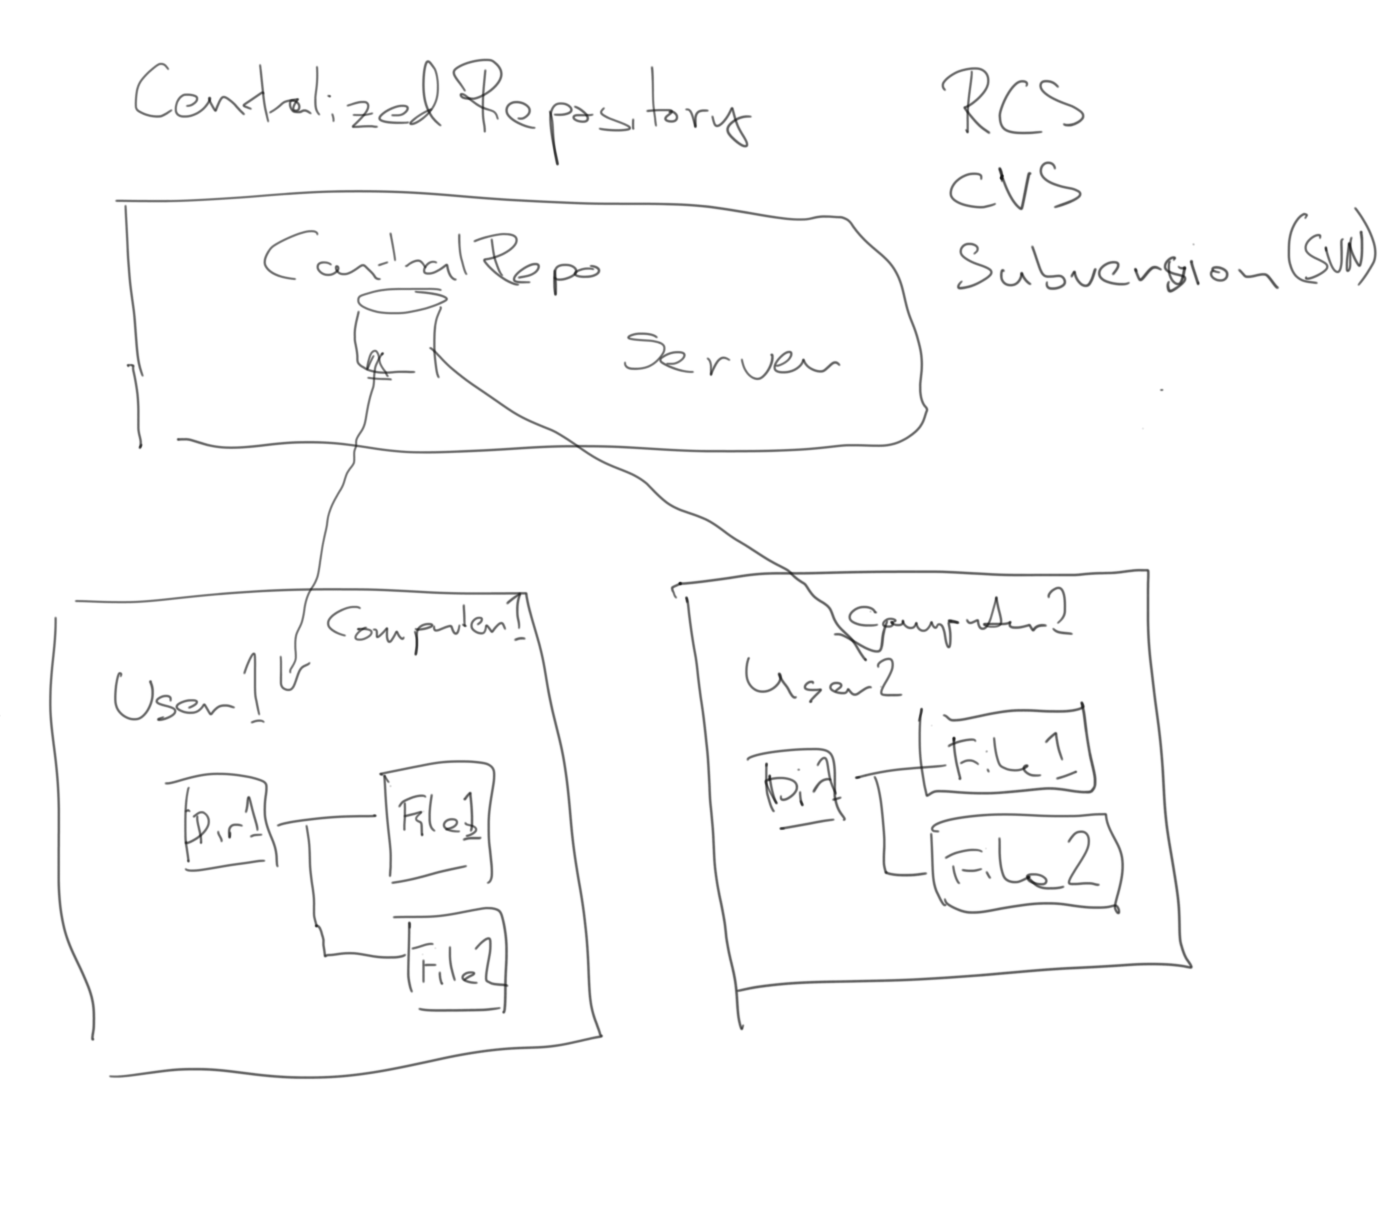 Centralized Repository
RCS
CVS
Subversion (SVN)
Central Repo
Server
Computer1
User1
Dir1
File1
File2
Computer2
User2
Dir1
File1
File2